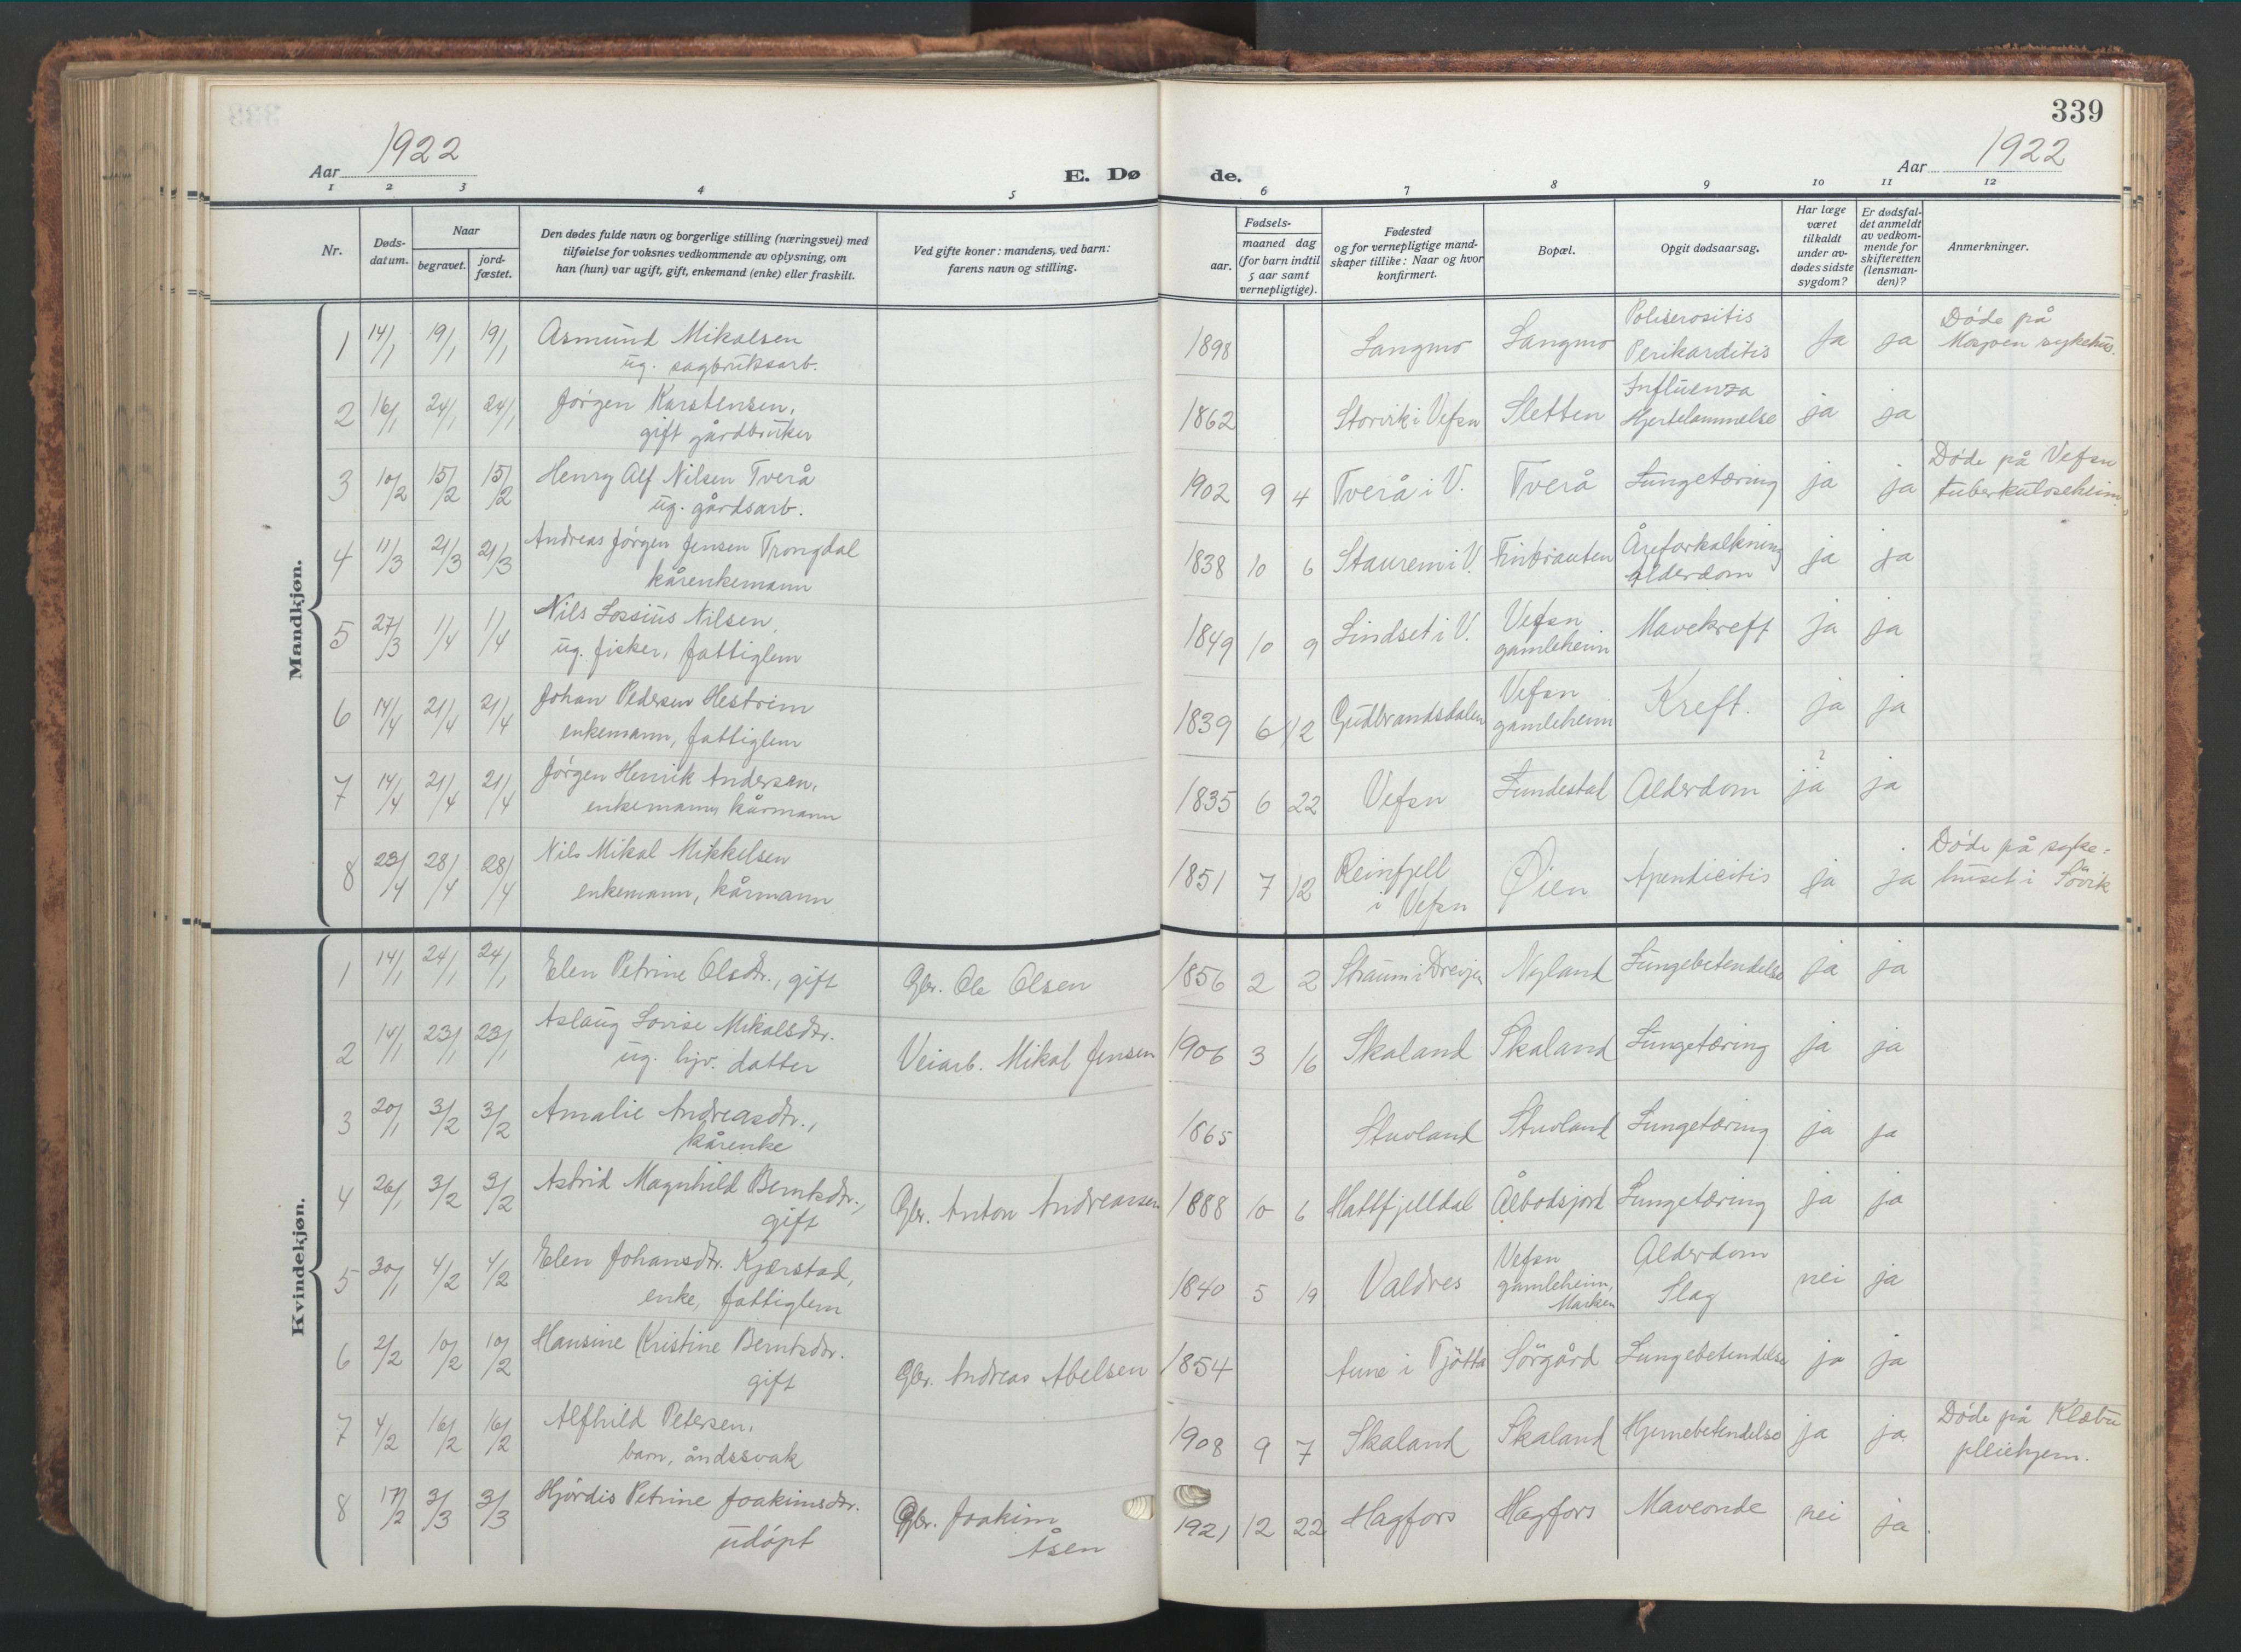 339
Aar 1922
E. Dø de.
Aar 1922
1 2 3 4 5 6 7 8 9 10 11 12
Nr.
Døds-
datum.
Naar
begravet.
jord-
fæstet.
Den dødes fulde navn og borgerlige stilling (næringsvei) med
tilføielse for voksnes vedkommende av oplysning, om
han (hun) var ugift, gift, enkemand (enke) eller fraskilt.
Ved gifte koner: mandens, ved barn:
farens navn og stilling.
Fødsels-
aar.
maaned dag
(for barn indtil
5 aar samt
vernepligtige).
Fødested
og for vernepligtige mand-
skaper tillike: Naar og hvor
konfirmert.
Bopæl.
Opgit dødsaarsag.
Har læge
været
tilkaldt
under av-
dødes sidste
sygdom?
Er dødsfal-
det anmeldt
av vedkom-
mende for
skifteretten
(lensman-
den)?
Anmerkninger.
Mandkjøn.
1 14/1 19/1 19/1 Asmund Mikalsen
ug. sagbruksarb.
1898 Langmo Langmo Poliserositis
Perikarditis
Ja ja Døde på
Mosjøen sykehus.
2 16/1 24/1 24/1 Jørgen Karstensen,
gift gårdbruker
1862 Storvik i Vefsn Sletten Influenza
Hjertelammelse
ja ja
3 10/2 15/2 15/2 Henry Alf Nilsen Tverå
ug. gårdsarb.
1902 9 4 Tverå i V. Tverå Lungetæring ja ja Døde på Vefsn
tuberkuloseheim
4 11/3 21/3 21/3 Andreas Jørgen Jensen Trongdal
kårenkemann
1838 10 6 Staurem i V. Åreforkalkning
Alderdom
ja ja
5 27/3 1/4 1/4 Nils Lossius Nilsen,
ug. fisker, fattiglem
1849 10 9 Lindset i V. Vefsn
gamleheim
Mavekreft ja ja
6 14/4 21/4 21/4 Johan Pedersen Hestrim
enkemann, fattiglem
1839 6 12 Gudbrandsdalen Vefsn
gamleheim
Kreft. ja ja
7 14/4 21/4 21/4 Jørgen Henrik Andersen,
enkemann, kårmann
1835 6 22 Vefsn Lundestad Alderdom ?
ja ja
8 23/4 28/4 28/4 Nils Mikal Mikkelsen
enkemann, kårmann
1851 7 12 Reinfjell
i Vefsn
Øien Apendicitis ja ja Døde på syke-
huset i Søvik
Kvindekjøn.
1 14/1 24/1 24/1 Elen Petrine Olsdtr., gift Gbr. Ole Olsen
1856 2 2 Straum i Drevjen Nyland Lungebetendelse ja ja
2 14/1 23/1 23/1 Aslaug Lovise Mikalsdtr.
ug. hjv. datter
Veiarb. Mikal Jensen
1906 3 16 Skaland Skaland Lungetæring ja ja
3 20/1 3/2 3/2 Amalie Andreasdtr.,
kårenke
1865 Stuvland Stuvland Lungetæring ja ja
4 26/1 3/2 3/2 Astrid Magnhild Berntsdtr.,
gift
Gbr. Anton Andreassen
1888 10 6 Hattfjelldal Ålbodsjord Lungetæring ja ja
5 30/1 4/2 4/2 Elen Johansdtr. Kjærstad,
enke, fattiglem
1840 5 19 Valdres Vefsn
gamleheim,
Marken
Alderdom
Slag
nei ja
6 2/2 10/2 10/2 Hansine Kristine Berntsdtr.
gift
Gbr. Andreas Abelsen
1854 Aune i Tjøtta Sörgård Lungebetendelse ja ja
7 4/2 16/2 16/2 Alfhild Petersen,
barn, åndssvak
1908 9 7 Skaland Skaland Hjernebetendelse ja ja Døde på Klæbu
pleiehjem.
8 17/2 3/3 3/3 Hjørdis Petrine Joakimsdtr.
udøpt
Gbr. Joakim
Åsen
1921 12 22 Hagfors Hagfors Maveonde nei ja.